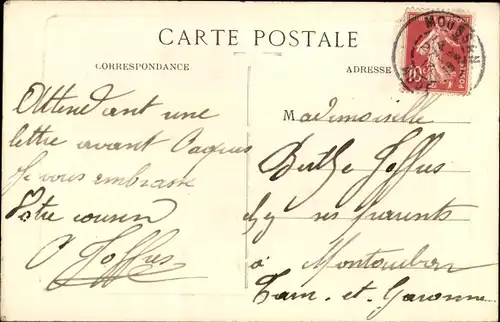 CARTE POSTALE
CORRESPONDANCE
ADRESSE
MOUSSAN
10
POSTES
Attendant une
lettre avant Paques
Je vous embrasse
Votre cousin
Joffres
Mademoiselle
Berthe Joffres
chez ses parents
à Montauban
Tarn-et-Garonne